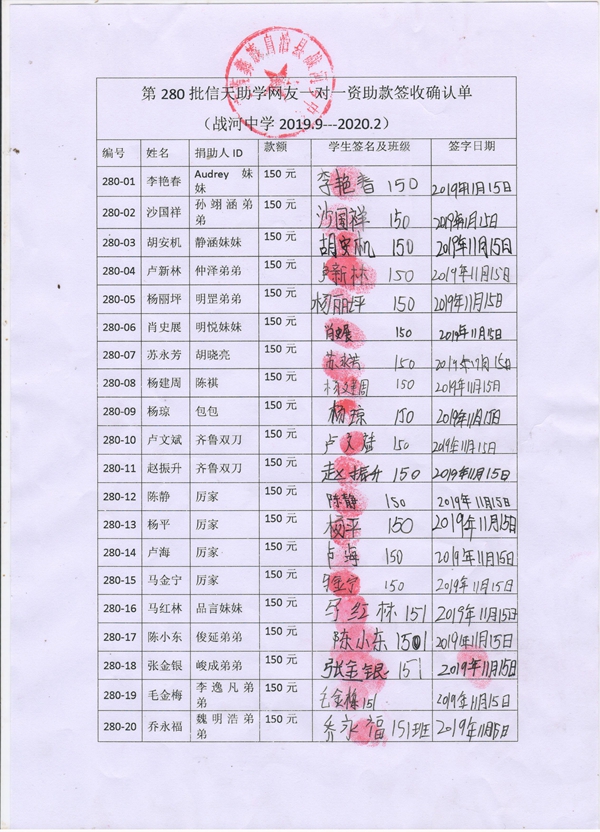 彝族自治县战河
第 280 批信天助学网友一对一资助款签收确认单
（战河中学 2019.9---2020.2）
编号 姓名 捐助人 ID 款额 学生签名及班级 签字日期
280-01 李艳春 Audrey 妹妹 150 元 李艳春 150 2019年11月15日
280-02 沙国祥 孙翊涵弟弟 150 元 沙国祥 150 2019年11月15日
280-03 胡安机 静涵妹妹 150 元 胡安机 150 2019年11月15日
280-04 卢新林 仲泽弟弟 150 元 卢新林 150 2019年11月15日
280-05 杨丽坪 明罡弟弟 150 元 杨丽坪 150 2019年11月15日
280-06 肖史展 明悦妹妹 150 元 肖史展 150 2019年11月15日
280-07 苏永芳 胡晓亮 150 元 苏永芳 150 2019年11月15日
280-08 杨建周 陈祺 150 元 杨建周 150 2019年11月15日
280-09 杨琼 包包 150 元 杨琼 150 2019年11月15日
280-10 卢文斌 齐鲁双刀 150 元 卢文斌 150 2019年11月15日
280-11 赵振升 齐鲁双刀 150 元 赵振升 150 2019年11月15日
280-12 陈静 厉家 150 元 陈静 150 2019年11月15日
280-13 杨平 厉家 150 元 杨平 150 2019年11月15日
280-14 卢海 厉家 150 元 卢海 150 2019年11月15日
280-15 马金宁 厉家 150 元 马金宁 150 2019年11月15日
280-16 马红林 品言妹妹 150 元 马红林 151 2019年11月15日
280-17 陈小东 俊延弟弟 150 元 陈小东 151 2019年11月15日
280-18 张金银 峻成弟弟 150 元 张金银 151 2019年11月15日
280-19 毛金梅 李逸凡弟弟 150 元 毛金梅 151 2019年11月15日
280-20 乔永福 魏明浩弟弟 150 元 乔永福 151班 2019年11月15日